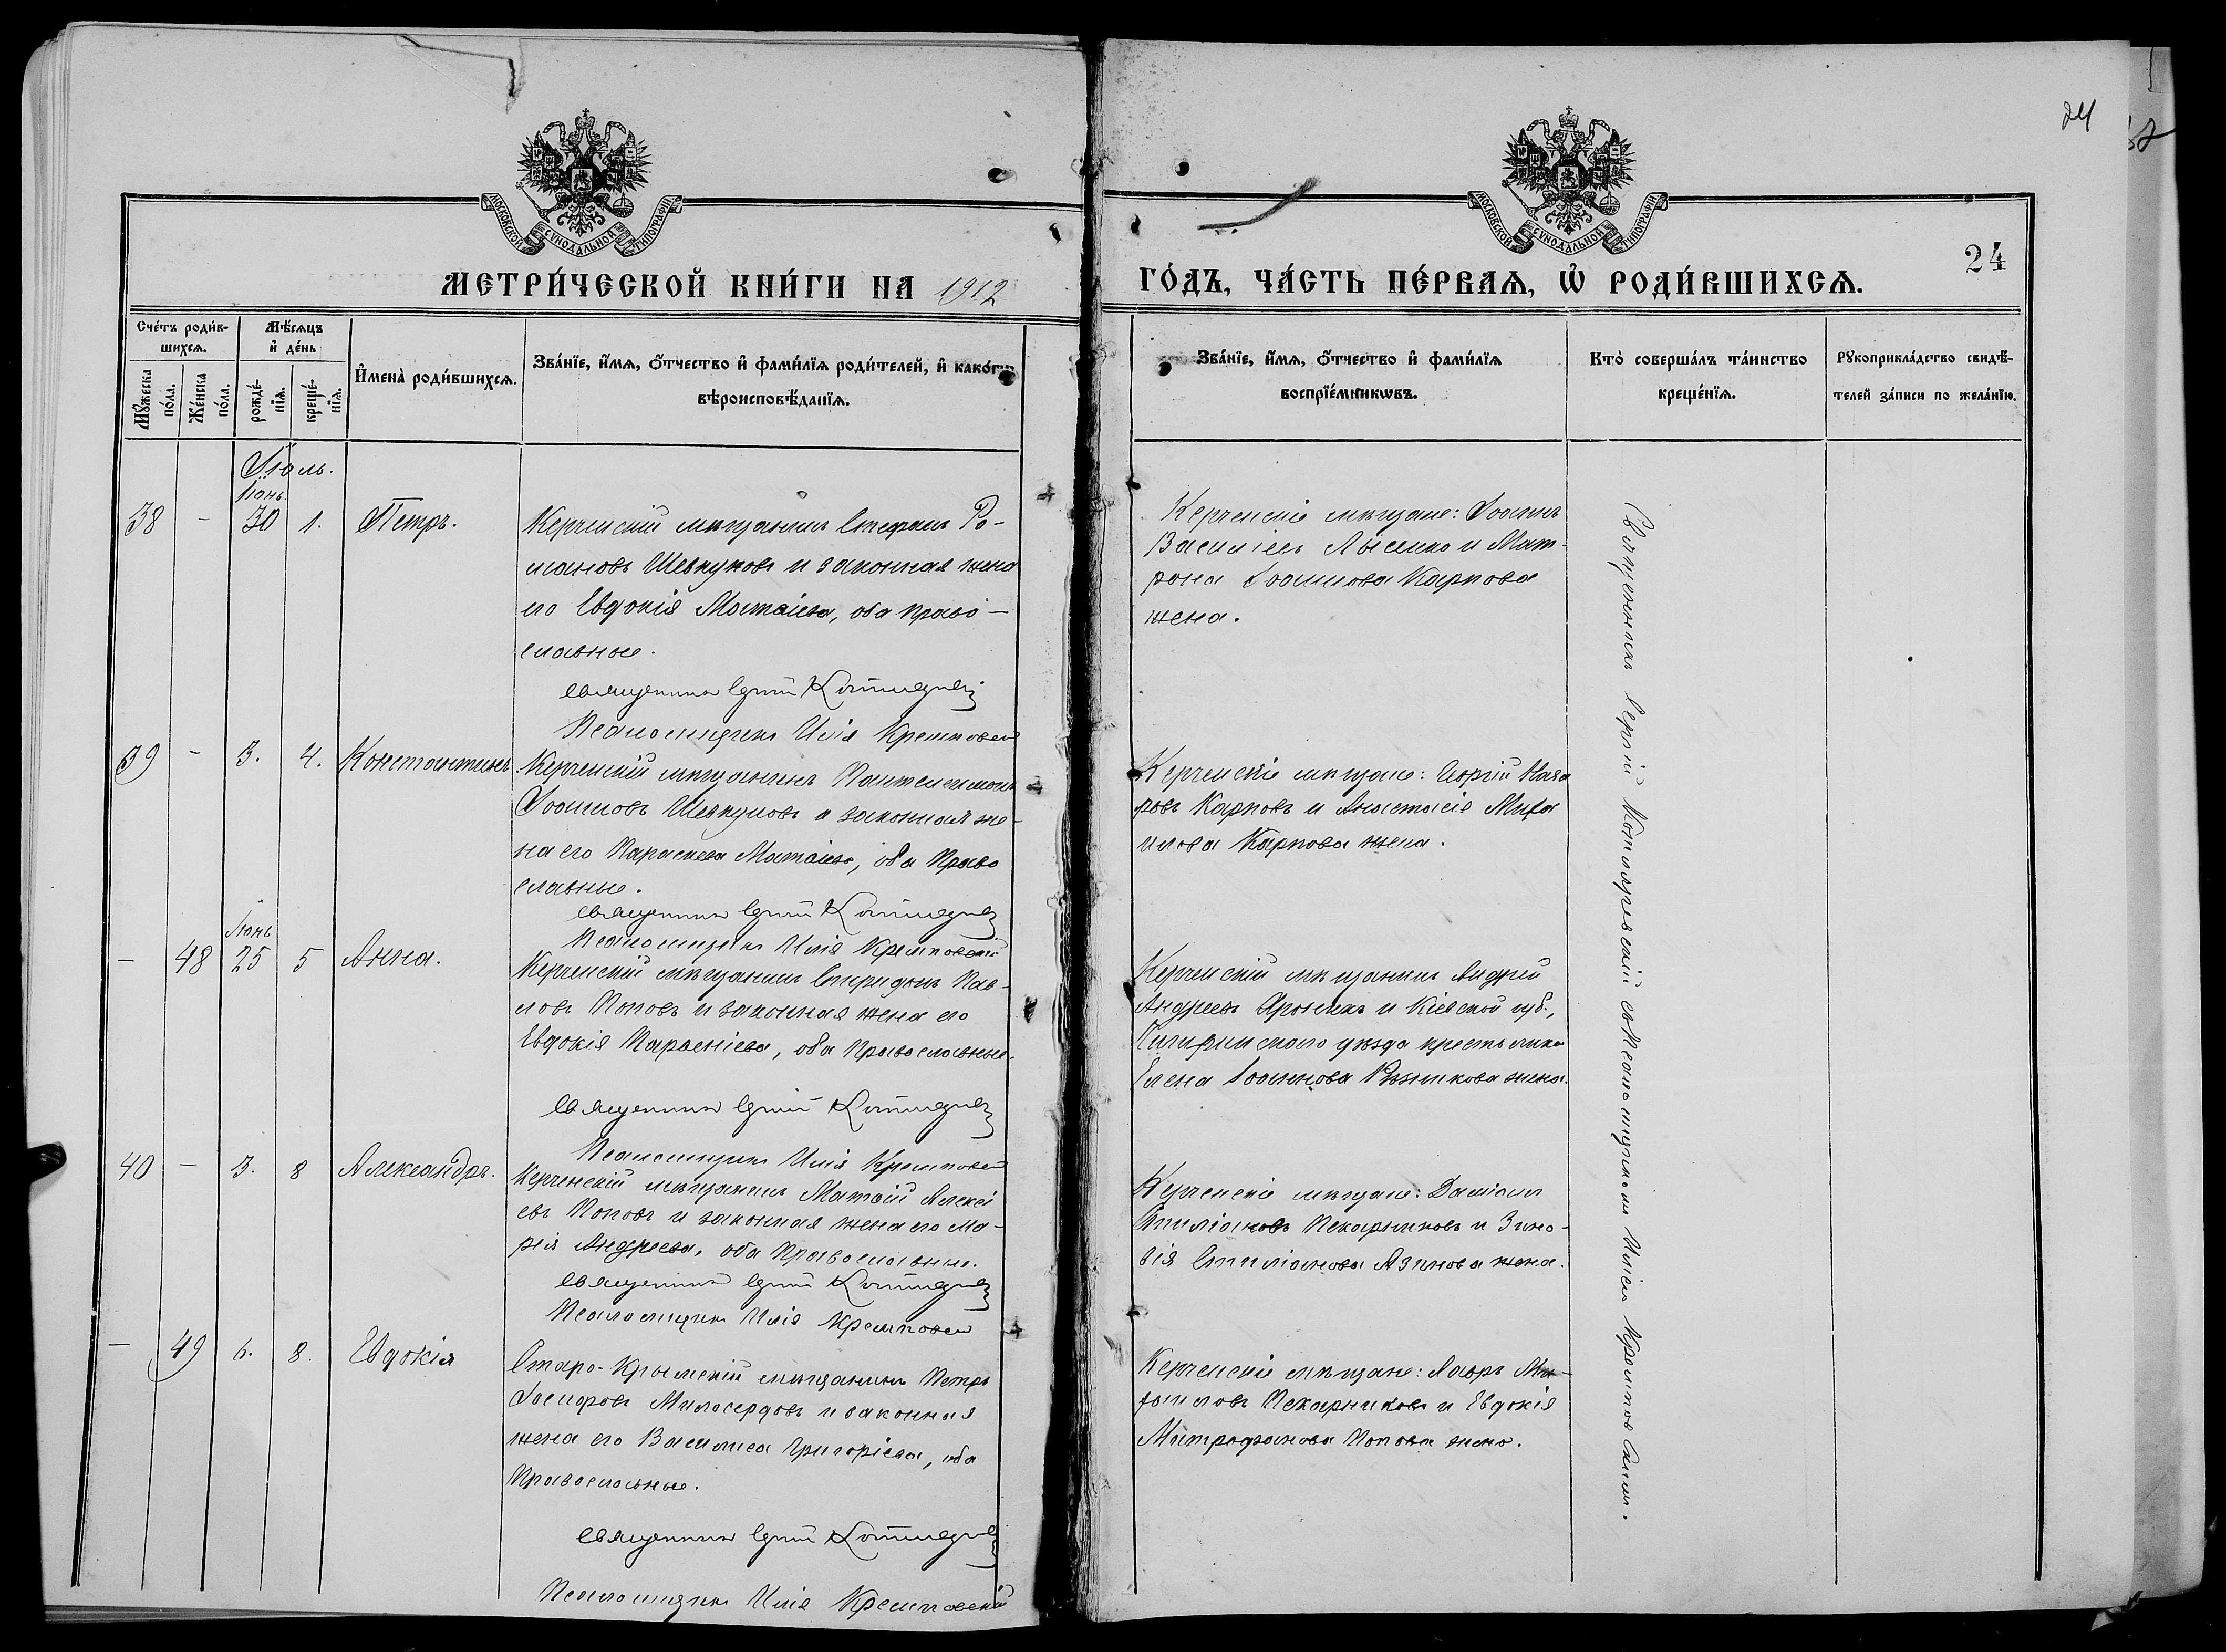 24
МОСКОВСКОЙ СѴНОДАЛЬНОЙ ТИПОГРАФІИ
МОСКОВСКОЙ СѴНОДАЛЬНОЙ ТИПОГРАФІИ
МЕТРИ́ЧЕСКОЙ КНИ́ГИ НА 1912 ГО́ДЪ, ЧА́СТЬ ПЕ́РВАѦ, Ѡ҆ РОДИ́ВШИХСѦ.
24
Сче́тъ роди́в-
шихсѧ.
Мꙋ́жеска
по́ла.
Же́нска
по́ла.
Мѣ́сѧцъ
и҆ де́нь
рожде́-
нїѧ.
креще́-
нїѧ.
И҆мена̀ роди́вшихсѧ.
Зва́нїе, и҆́мѧ, ѻ҆́тчество и҆ фами́лїѧ роди́телей, и҆ како́гѡ
вѣроисповѣ́данїѧ.
Зва́нїе, и҆́мѧ, ѻ҆́тчество и҆ фами́лїѧ
воспрїе́мникѡвъ.
Кто̀ соверша́лъ та́инство
креще́нїѧ.
Рꙋкоприкла́дство свидѣ́-
телей за́писи по жела́нїю.
Іюль.
Іюнь.
38 - 30 1. Петръ.
Керченскій мѣщанинъ Стефанъ Ро-
мановъ Шевкуновъ и законная жена
его Евдокія Матѳіева, оба право-
славные.
Священникъ Сергій Котляревскій
Псаломщикъ Илія Кремповскій
Керченскіе мѣщане: Іоаннъ
Василіевъ Лысенко и Мат-
рона Іоаннова Карпова
жена.
39 - 3. 4. Константинъ
Керченскій мѣщанинъ Пантелеимонъ
Іоанновъ Шевкуновъ и законная же-
на его Параскева Матѳіева, оба Право
славные.
Священникъ Сергій Котляревскій
Псаломщикъ Илія Кремповскій
Керченскіе мѣщане: Георгій Наза
ровъ Карповъ и Анастасія Миха
илова Карпова жена.
Іюнь
- 48 25 5 Анна.
Керченскій мѣщанинъ Спиридонъ Пав-
ловъ Поповъ и законная жена его
Евдокія Парѳеніева, оба Православные.
Священникъ Сергій Котляревскій
Псаломщикъ Илія Кремповскій
Керченскій мѣщанинъ Андрей
Андреевъ и Кіевской губ.,
Чигиринскаго уѣзда крестьянка
Елена Іоаннова Рѣзникова жена.
40 - 3. 8 Александръ.
Керченскій мѣщанинъ Матѳій Алексі
евъ Поповъ и законная жена его Ма-
рія Андреева, оба Православные.
Священникъ Сергій Котляревскій
Псаломщикъ Илія Кремповскій
Керченскіе мѣщане: Даніилъ
Стиліановъ Пекарниковъ и Зино-
вія Стиліанова Азинова жена.
- 49 6. 8. Евдокія
Старо-Крымскій мѣщанинъ Петръ
Іосифовъ Милосердовъ и законная
жена его Василиса Григоріева, оба
Православные.
Священникъ Сергій Котляревскій
Псаломщикъ Илія Кремповскій
Керченскіе мѣщане: Лавръ Ми-
хаиловъ Пекарниковъ и Евдокія
Митрофанова Попова жена.
Священникъ Сергій Котляревскій съ Псаломщикомъ Иліею Кремповскимъ.